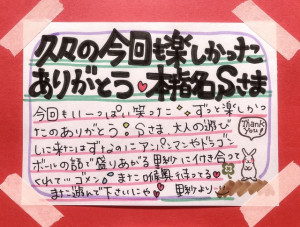 久々の今回も楽しかった
ありがとう♥本指名Sさま
今回もいーっぱい笑った ずっと楽しかっ
たのありがとう Sさま、大人の遊び
しに来たはずなのにアンパンマンやドラゴン
ボールの話で盛りあがる里紗に付き合って
くれて…ゴメン また喉奥待ってる♥
また遊んで下さいにゃ♥ 里紗より
Thank
You!